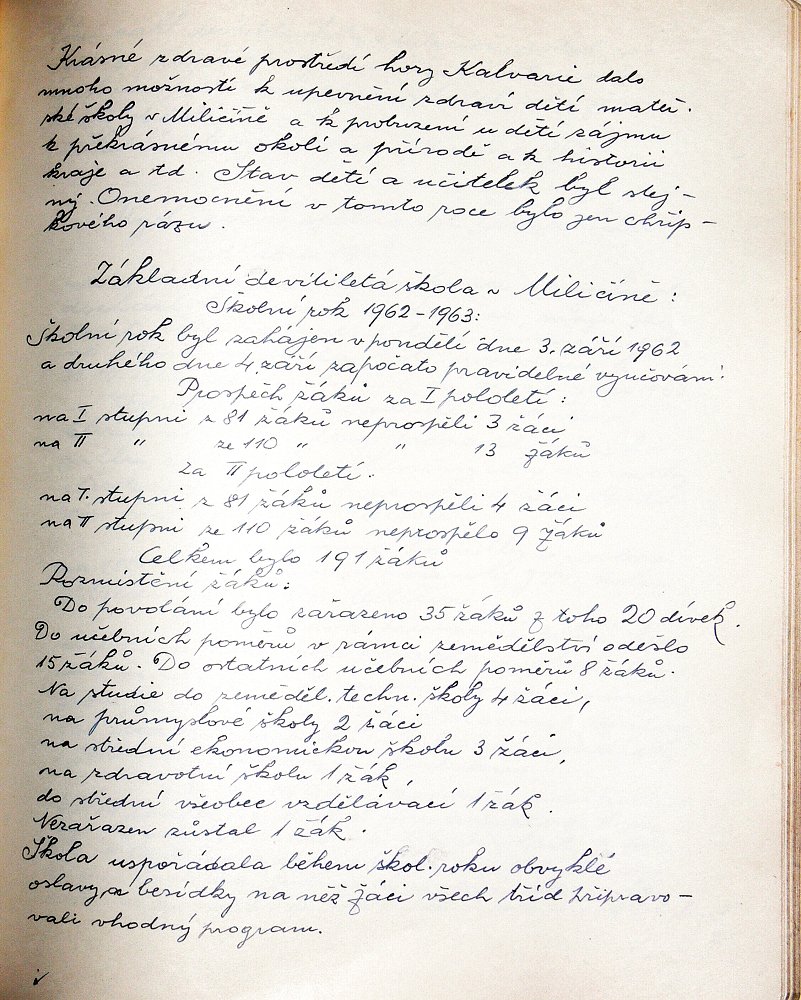 Krásné zdravé prostředí hory Kalvarie dalo
mnoho možností k upevnění zdraví dětí mateř.
ské školy v Miličíně a k probuzení u dětí zájmu
k překrásnému okolí a přírodě a k historii
kraje a td. Stav dětí a učitelek byl stej-
ný. Onemocnění v tomto roce bylo jen chřip-
kového rázu.
Základní devítiletá škola v Miličíně:
Školní rok 1962-1963:
Školní rok byl zahájen v pondělí dne 3. září 1962
a druhého dne 4 září započato pravidelné vyučování.
Prospěch žáků za I pololetí:
na I stupni z 81 žáků neprospěli 3 žáci
na II " ze 110 " " 13 žáků
za II pololetí.
na I. stupni z 81 žáků neprospěli 4 žáci
na II stupni ze 110 žáků neprospělo 9 žáků
Celkem bylo 191 žáků
Rozmístění žáků:
Do povolání bylo zařazeno 35 žáků z toho 20 dívek.
Do učebních poměrů v rámci zemědělství odešlo
15 žáků. Do ostatních učebních poměrů 8 žáků.
Na studie do zeměděl. techn. školy 4 žáci,
na průmyslové školy 2 žáci
na střední ekonomickou školu 3 žáci,
na zdravotní školu 1 žák,
do střední všeobec vzdělávací 1 žák.
Nezařazen zůstal 1 žák.
Škola uspořádala během škol. roku obvyklé
oslavy a besídky na něž žáci všech tříd připravo-
vali vhodný program.